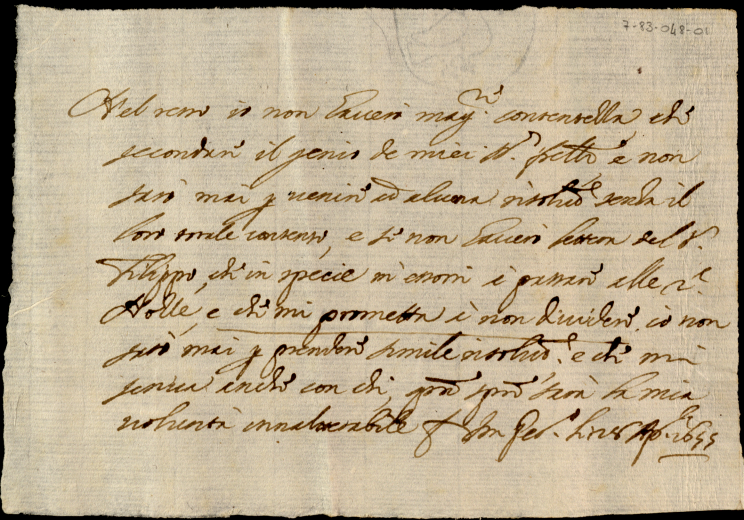 7-83-048-01
Nel resto io non haverò mag.re contentezza che
secondare il genio de miei S.ri fretti e non
sarò mai p venire ad alcuna risolu.ne senza il
loro totale consenso, e se non haverò lettera del S.r
Filippo, che in specie mi essorti a passare alle 2.e
Nozze, e che mi prometta di non dividere, io non
sarò mai p prendere simile risolut.e e che mi
scriva anche con chi, sarà la mia
volontà inalterabile Gen.a li 28 Ap.le 1655